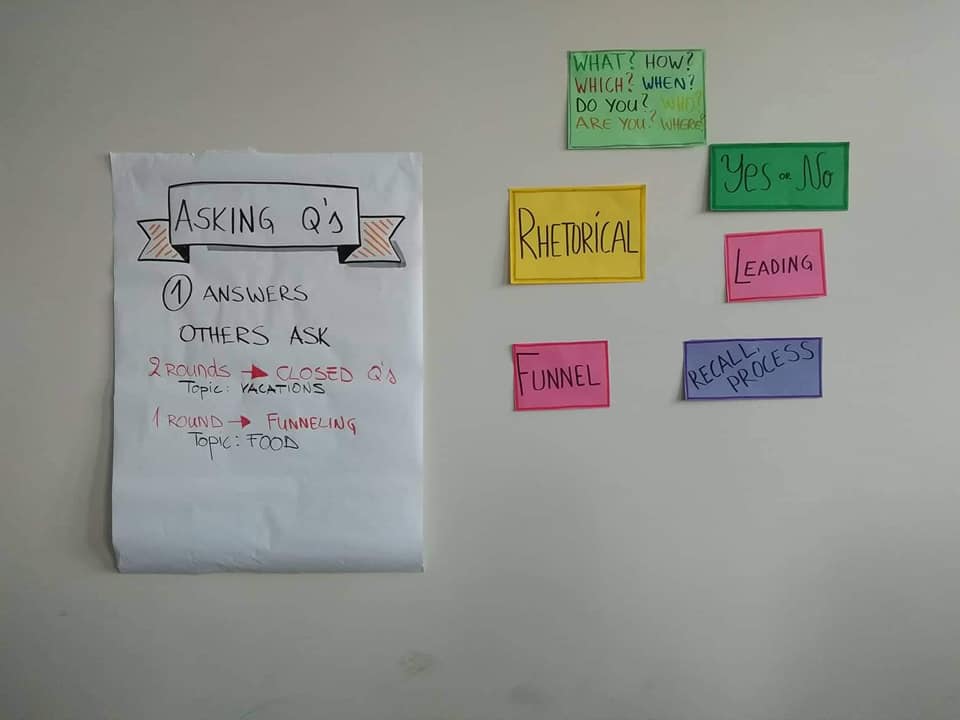 ASKING Q's
1 ANSWERS
OTHERS ASK
2 ROUNDS → CLOSED Q's
Topic: VACATIONS
1 ROUND → FUNNELING
Topic: FOOD
WHAT? HOW?
WHICH? WHEN?
DO YOU? WHO?
ARE YOU? WHERE?
YES OR NO
RHETORICAL
LEADING
FUNNEL
RECALL,
PROCESS